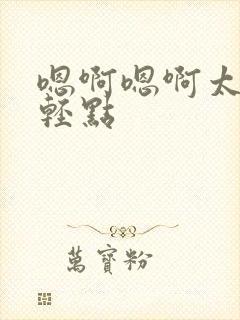 嗯啊嗯啊太
輕點
萬寶粉